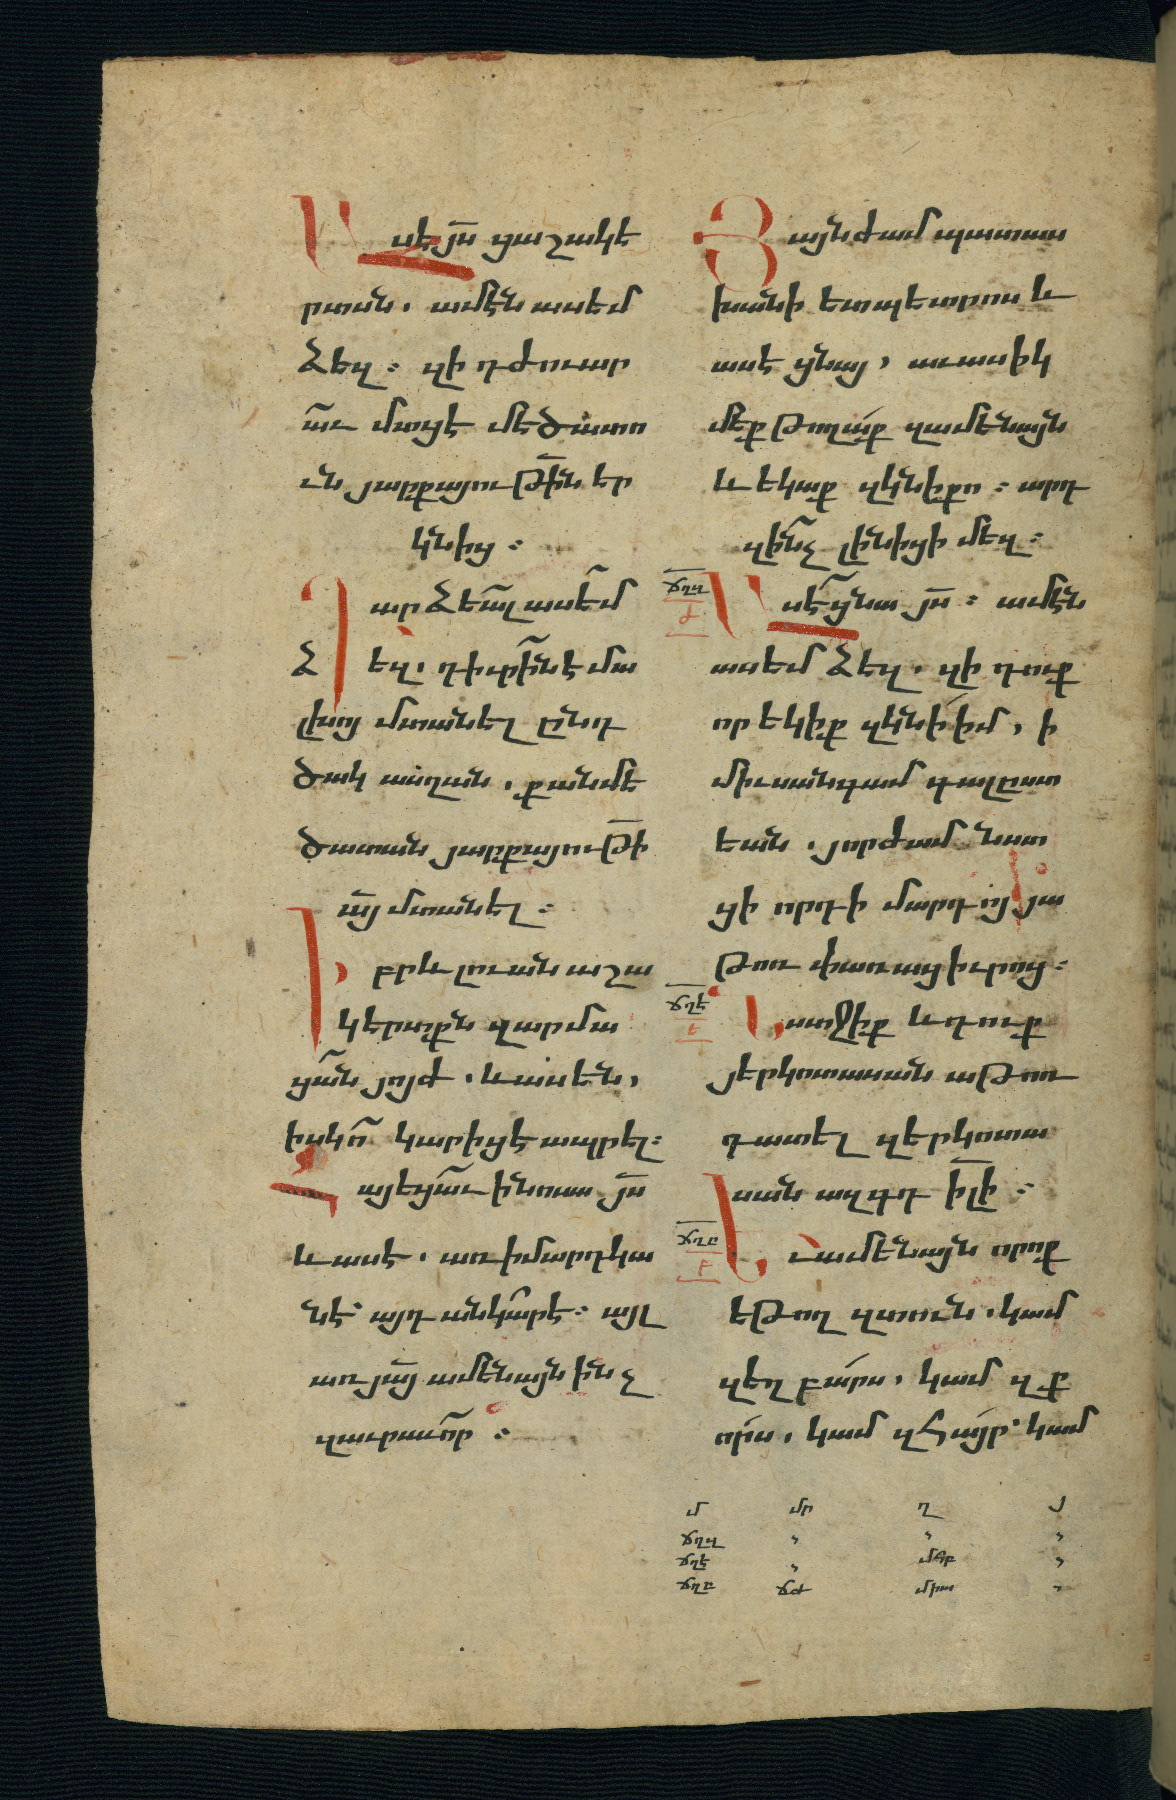 Ասէ յս ցաշակե
րտսն. ամէն ասեմ
ձեզ։ զի դժուար
աւ մտցէ մեծատո
ւն յարքայութին եր
կնից։
Դարձեալ ասեմ
ձեզ. դիւրին է մա
լխոյ մտանել ընդ
ծակ ասղան. քան մե
ծատան յարքայութի
այ մտանել։
Իբրև լուան աշա
կերտքն զարմա
ցան յոյժ. և ասեն,
իսկ ո կարիցէ ապրել։
Հայեցաւ ի նոսա յս
և ասէ. առ ի մարդկա
նէ այդ անկար է։ այլ
առ յայ ամենայն ինչ
զաւրաւոր։
Յայնժամ պատաս
խանի ետ պետրոս և
ասէ ցնայ, աւասիկ
մեք թողաք զամենայն
և եկաք զկնի քո։ արդ
զինչ լինիցի մեզ։
ճղդ
ժ
Ասէ ցնա յս։ ամէն
ասեմ ձեզ. զի դուք
որ եկիք զկնի իմ, ի
միւսանգամ գալըստ
եան. յորժամ նստ
ցի որդի մարդոյ յա
թոռ փառաց իւրոց։
ճղէ
ե
Նստջիք և դուք
յերկոտասան աթոռ
դատել զերկոտա
սան ազգդ իլի։
ճղը
բ
Եւ ամենայն որոք
եթող զտուն. կամ
զեղբարս. կամ զք
որս. կամ զհայր կամ
մ մր ղ յ
ճղդ
ճղէ
ճղը ճժ